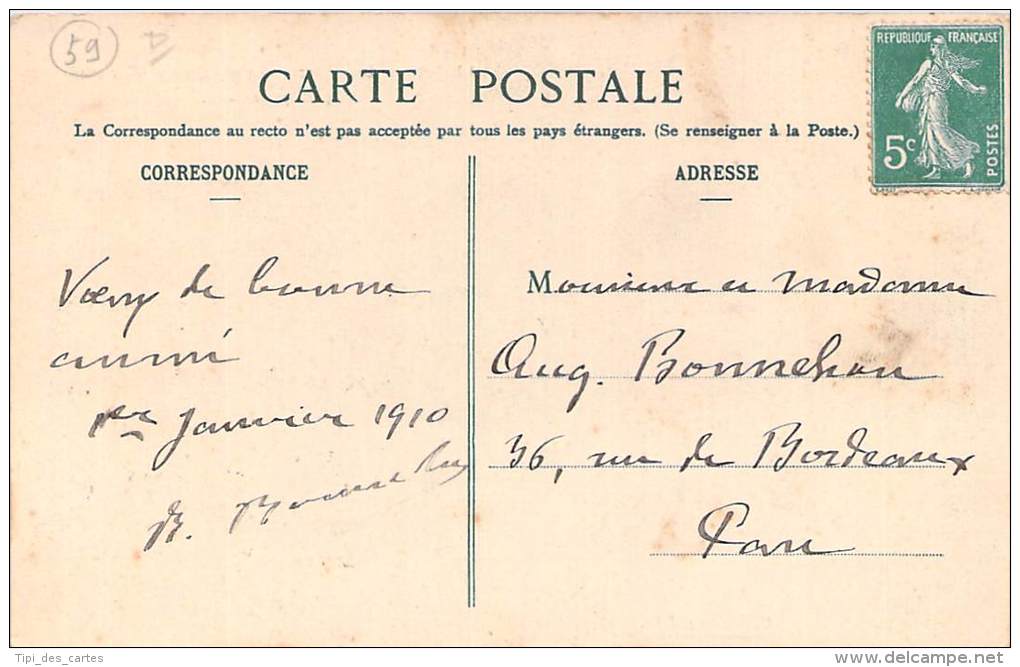 59
RÉPUBLIQUE FRANÇAISE
5c
POSTES
CARTE POSTALE
La Correspondance au recto n'est pas acceptée par tous les pays étrangers. (Se renseigner à la Poste.)
CORRESPONDANCE
Vœux de bonne
année
1er Janvier 1910
B.
ADRESSE
Monsieur et Madame
Aug.
36, rue de Bordeaux
Tipi_des_cartes
delcampe.net